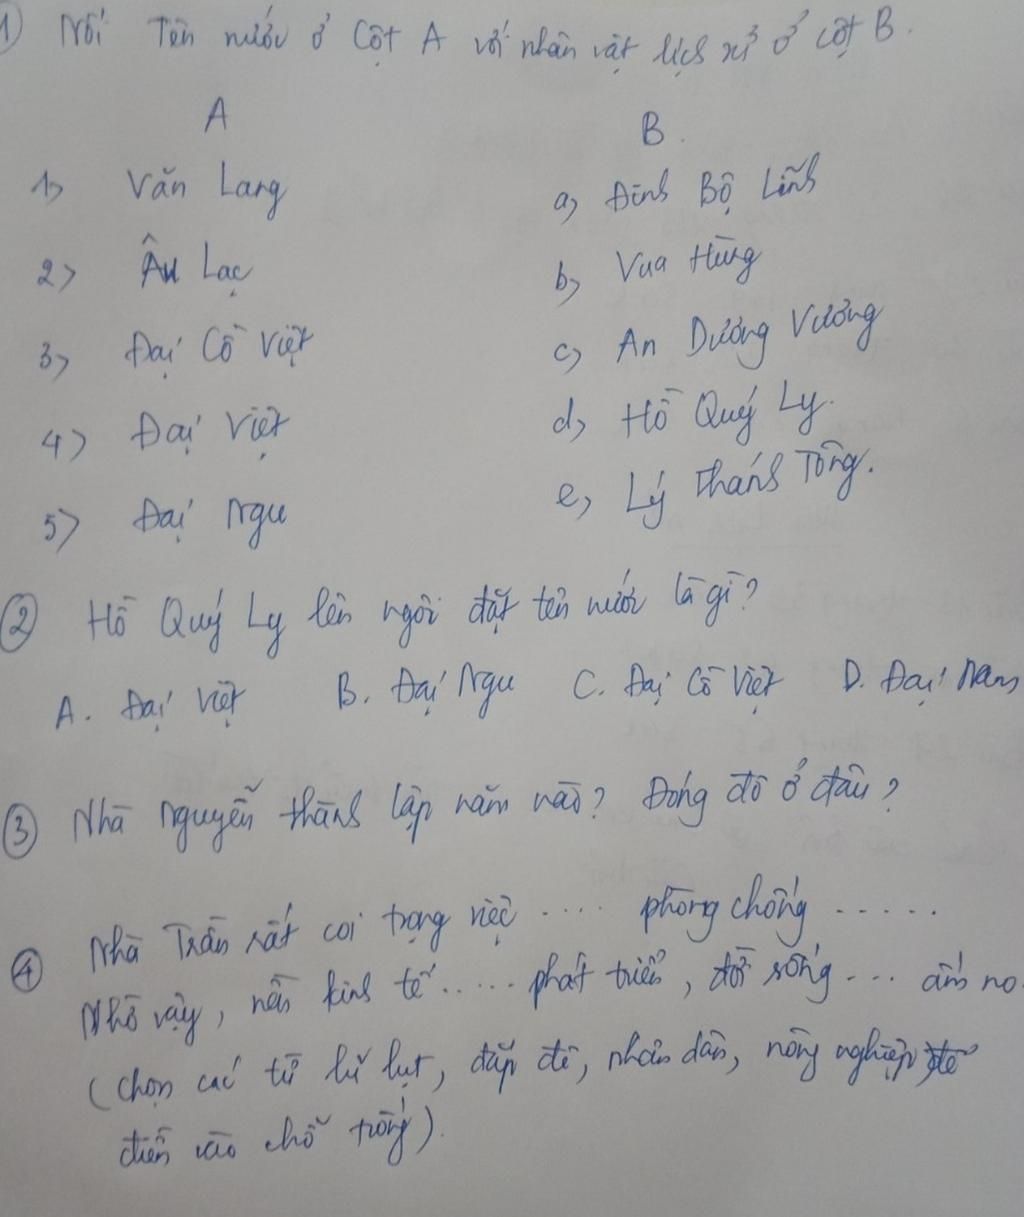 1) Nối Tên nước ở Cột A với nhân vật lịch sử ở cột B.
A B.
1) Văn Lang a) Đinh Bộ Lĩnh
2) Âu Lạc b) Vua Hùng
3) Đại Cồ Việt c) An Dương Vương
4) Đại Việt d) Hồ Quý Ly.
5) Đại Ngu e) Lý Thánh Tông.
② Hồ Quý Ly lên ngôi đặt tên nước là gì?
A. Đại Việt B. Đại Ngu C. Đại Cồ Việt D. Đại Nam
③ Nhà Nguyễn thành lập năm nào? Đóng đô ở đâu?
④ Nhà Trần rất coi trọng việc .... phòng chống .....
Nhờ vậy, nền kinh tế ..... phát triển, đời sống ... ấm no.
(chọn các từ lũ lụt, đắp đê, nhân dân, nông nghiệp để
điền vào chỗ trống).